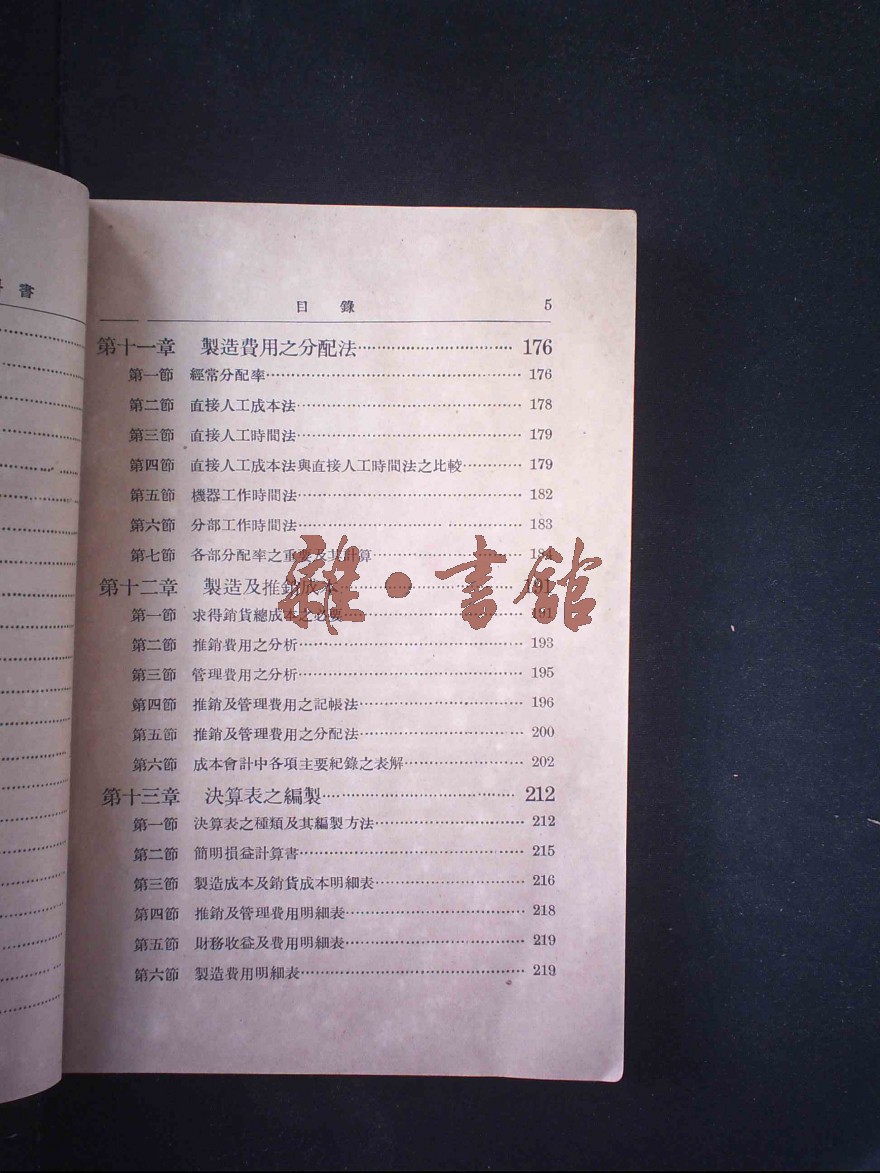 書
目錄 5
第十一章 製造費用之分配法 176
第一節 經常分配率 176
第二節 直接人工成本法 178
第三節 直接人工時間法 179
第四節 直接人工成本法與直接人工時間法之比較 179
第五節 機器工作時間法 182
第六節 分部工作時間法 183
第七節 各部分配率之重要及其計算 184
第十二章 製造及推銷成本 191
第一節 求得銷貨總成本之必要 191
第二節 推銷費用之分析 193
第三節 管理費用之分析 195
第四節 推銷及管理費用之記帳法 196
第五節 推銷及管理費用之分配法 200
第六節 成本會計中各項主要紀錄之表解 202
第十三章 決算表之編製 212
第一節 決算表之種類及其編製方法 212
第二節 簡明損益計算書 215
第三節 製造成本及銷貨成本明細表 216
第四節 推銷及管理費用明細表 218
第五節 財務收益及費用明細表 219
第六節 製造費用明細表 219
雜·書館